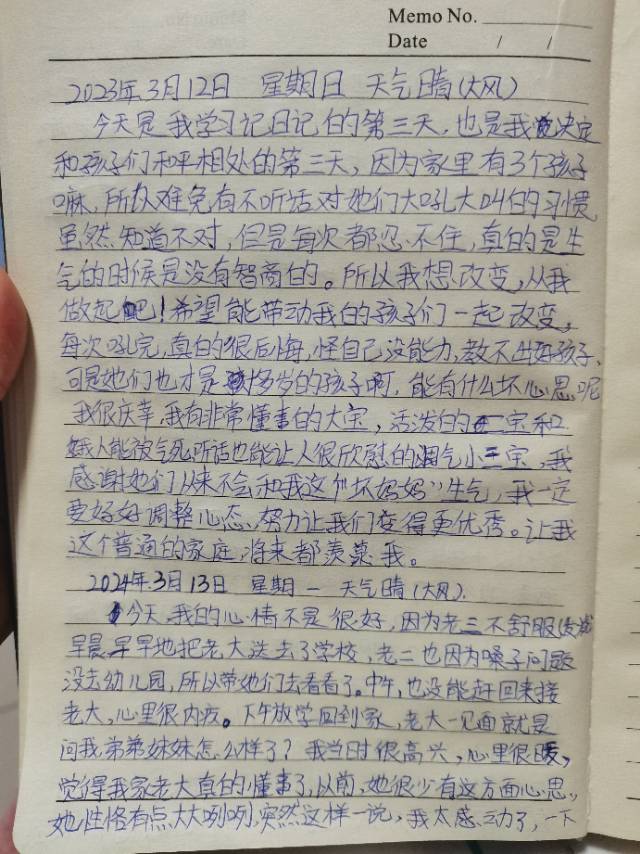 Memo No.
Date / /
2023年3月12日 星期日 天气晴(大风)
今天是我学习记日记的第三天,也是我决定
和孩子们和平相处的第三天,因为家里有3个孩子
嘛,所以难免有不听话对她们大吼大叫的习惯,
虽然知道不对,但是每次都忍不住,真的是生
气的时候是没有智商的。所以我想改变,从我
做起吧!希望能带动我的孩子们一起改变,
每次吼完,真的很后悔,怪自己没能力,教不出好孩子,
可是她们也才是几岁的孩子啊,能有什么坏心思呢
我很庆幸,我有非常懂事的大宝,活泼的二宝和
能被气死听话也能让人很欣慰的淘气小三宝,我
感谢她们从来不会和我这个“坏妈妈”生气,我一定
要好好调整心态,努力让我们变得更优秀。让我
这个普通的家庭,将来都羡慕我。
2024年3月13日 星期一 天气晴(大风).
今天,我的心情不是很好,因为老三不舒服(发烧
早晨早早地把老大送去了学校,老二也因为嗓子问题
没去幼儿园,所以带她们去看看了。中午,也没能赶回来接
老大,心里很内疚。下午放学回到家,老大一见面就是
问我弟弟妹妹怎么样了?我当时很高兴,心里很暖,
觉得我家老大真的懂事了,以前,她很少有这方面心思,
她性格有点大大咧咧,突然这样一说,我太感动了,一下